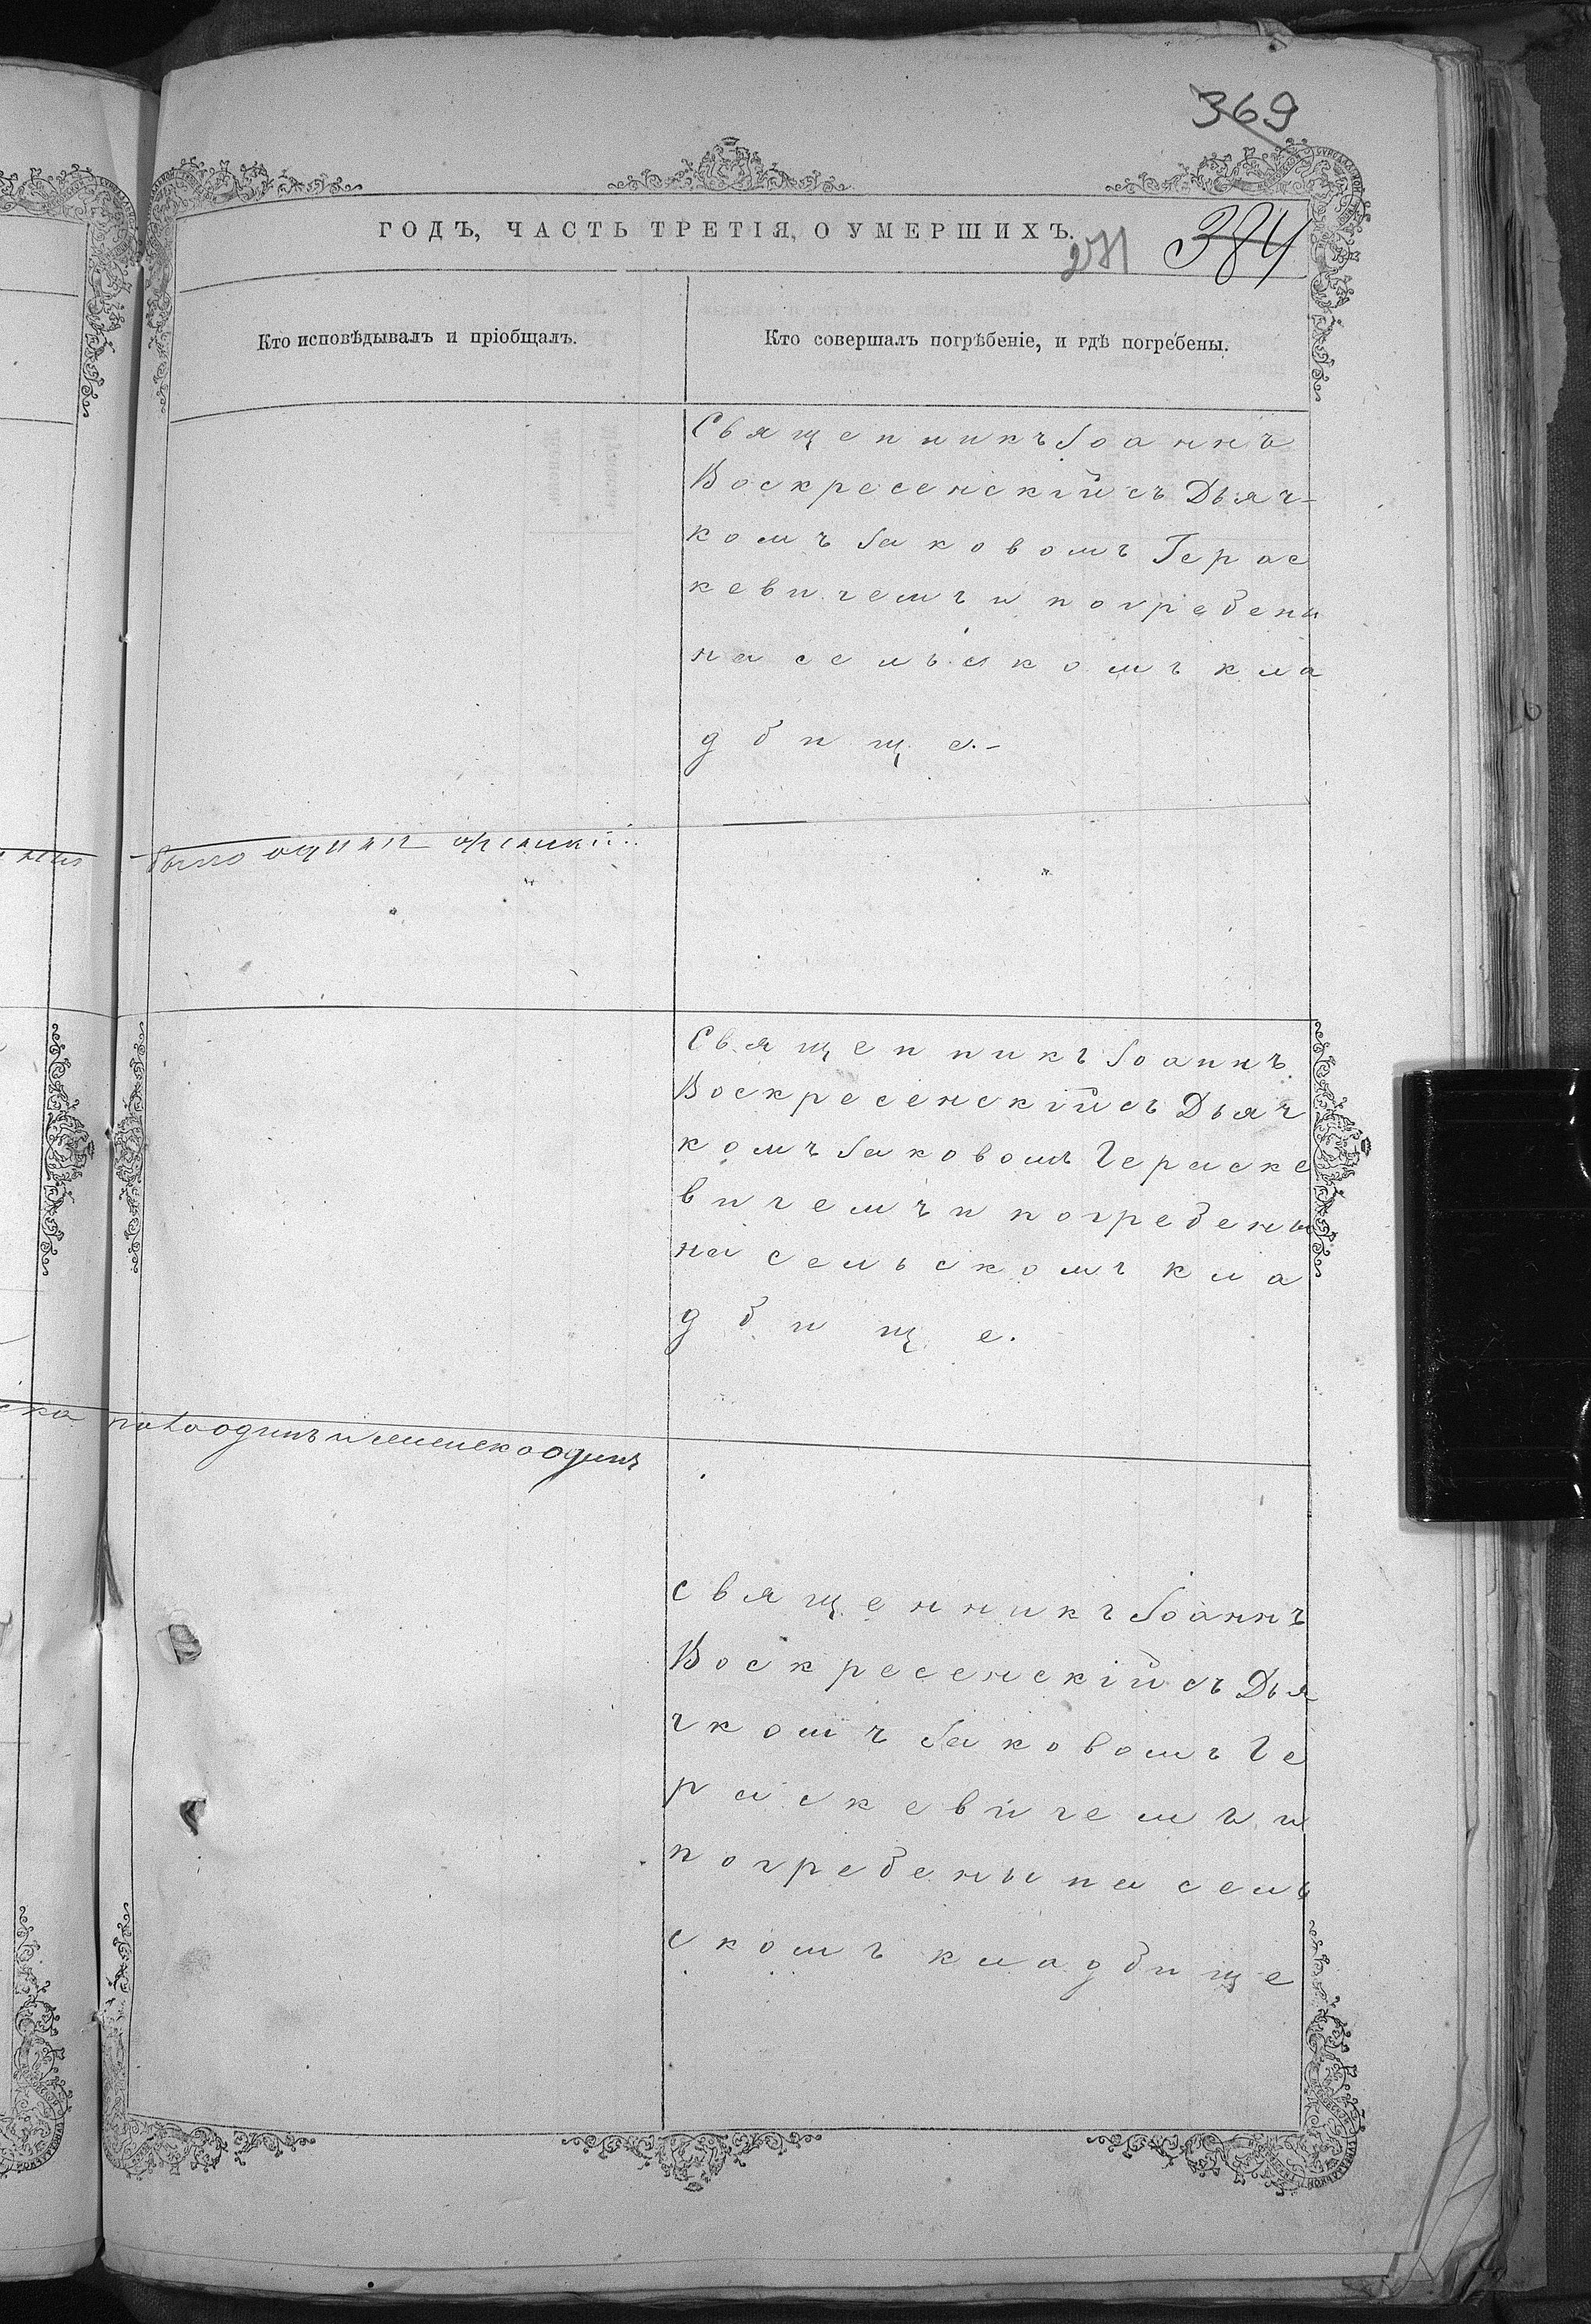 369
384
271
ГОДЪ, ЧАСТЬ ТРЕТІЯ, О УМЕРШИХЪ.
Кто исповѣдывалъ и пріобщалъ.
Кто совершалъ погрѣбеніе, и гдѣ погребены.
Священникъ Іоаннъ
Воскресенскій съ Дьяч-
комъ Іаковомъ Герас
кевичемъ и погребены
на сельскомъ кла
дбище.-
было
Священникъ Іоаннъ
Воскресенскій съ Дьяч
комъ Іаковомъ Гераске
вичемъ и погребены
на сельскомъ кла
дбище.
пола одинъ и женска один
священникъ Іоаннъ
Воскресенскій съ Дья
чкомъ Іаковомъ Ге
раскевичемъ и
погребены на сель
скомъ кладбище